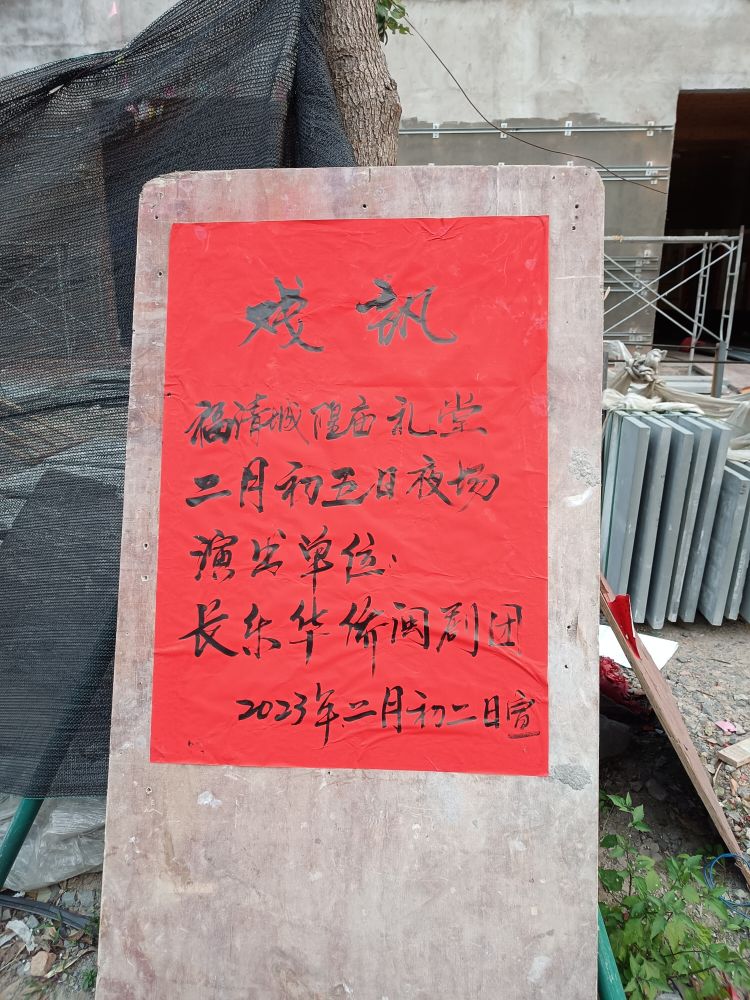 戏訊
福清城隍庙礼堂
二月初五日夜场
演出单位:
长乐华侨闽剧团
2023年二月初二日宣